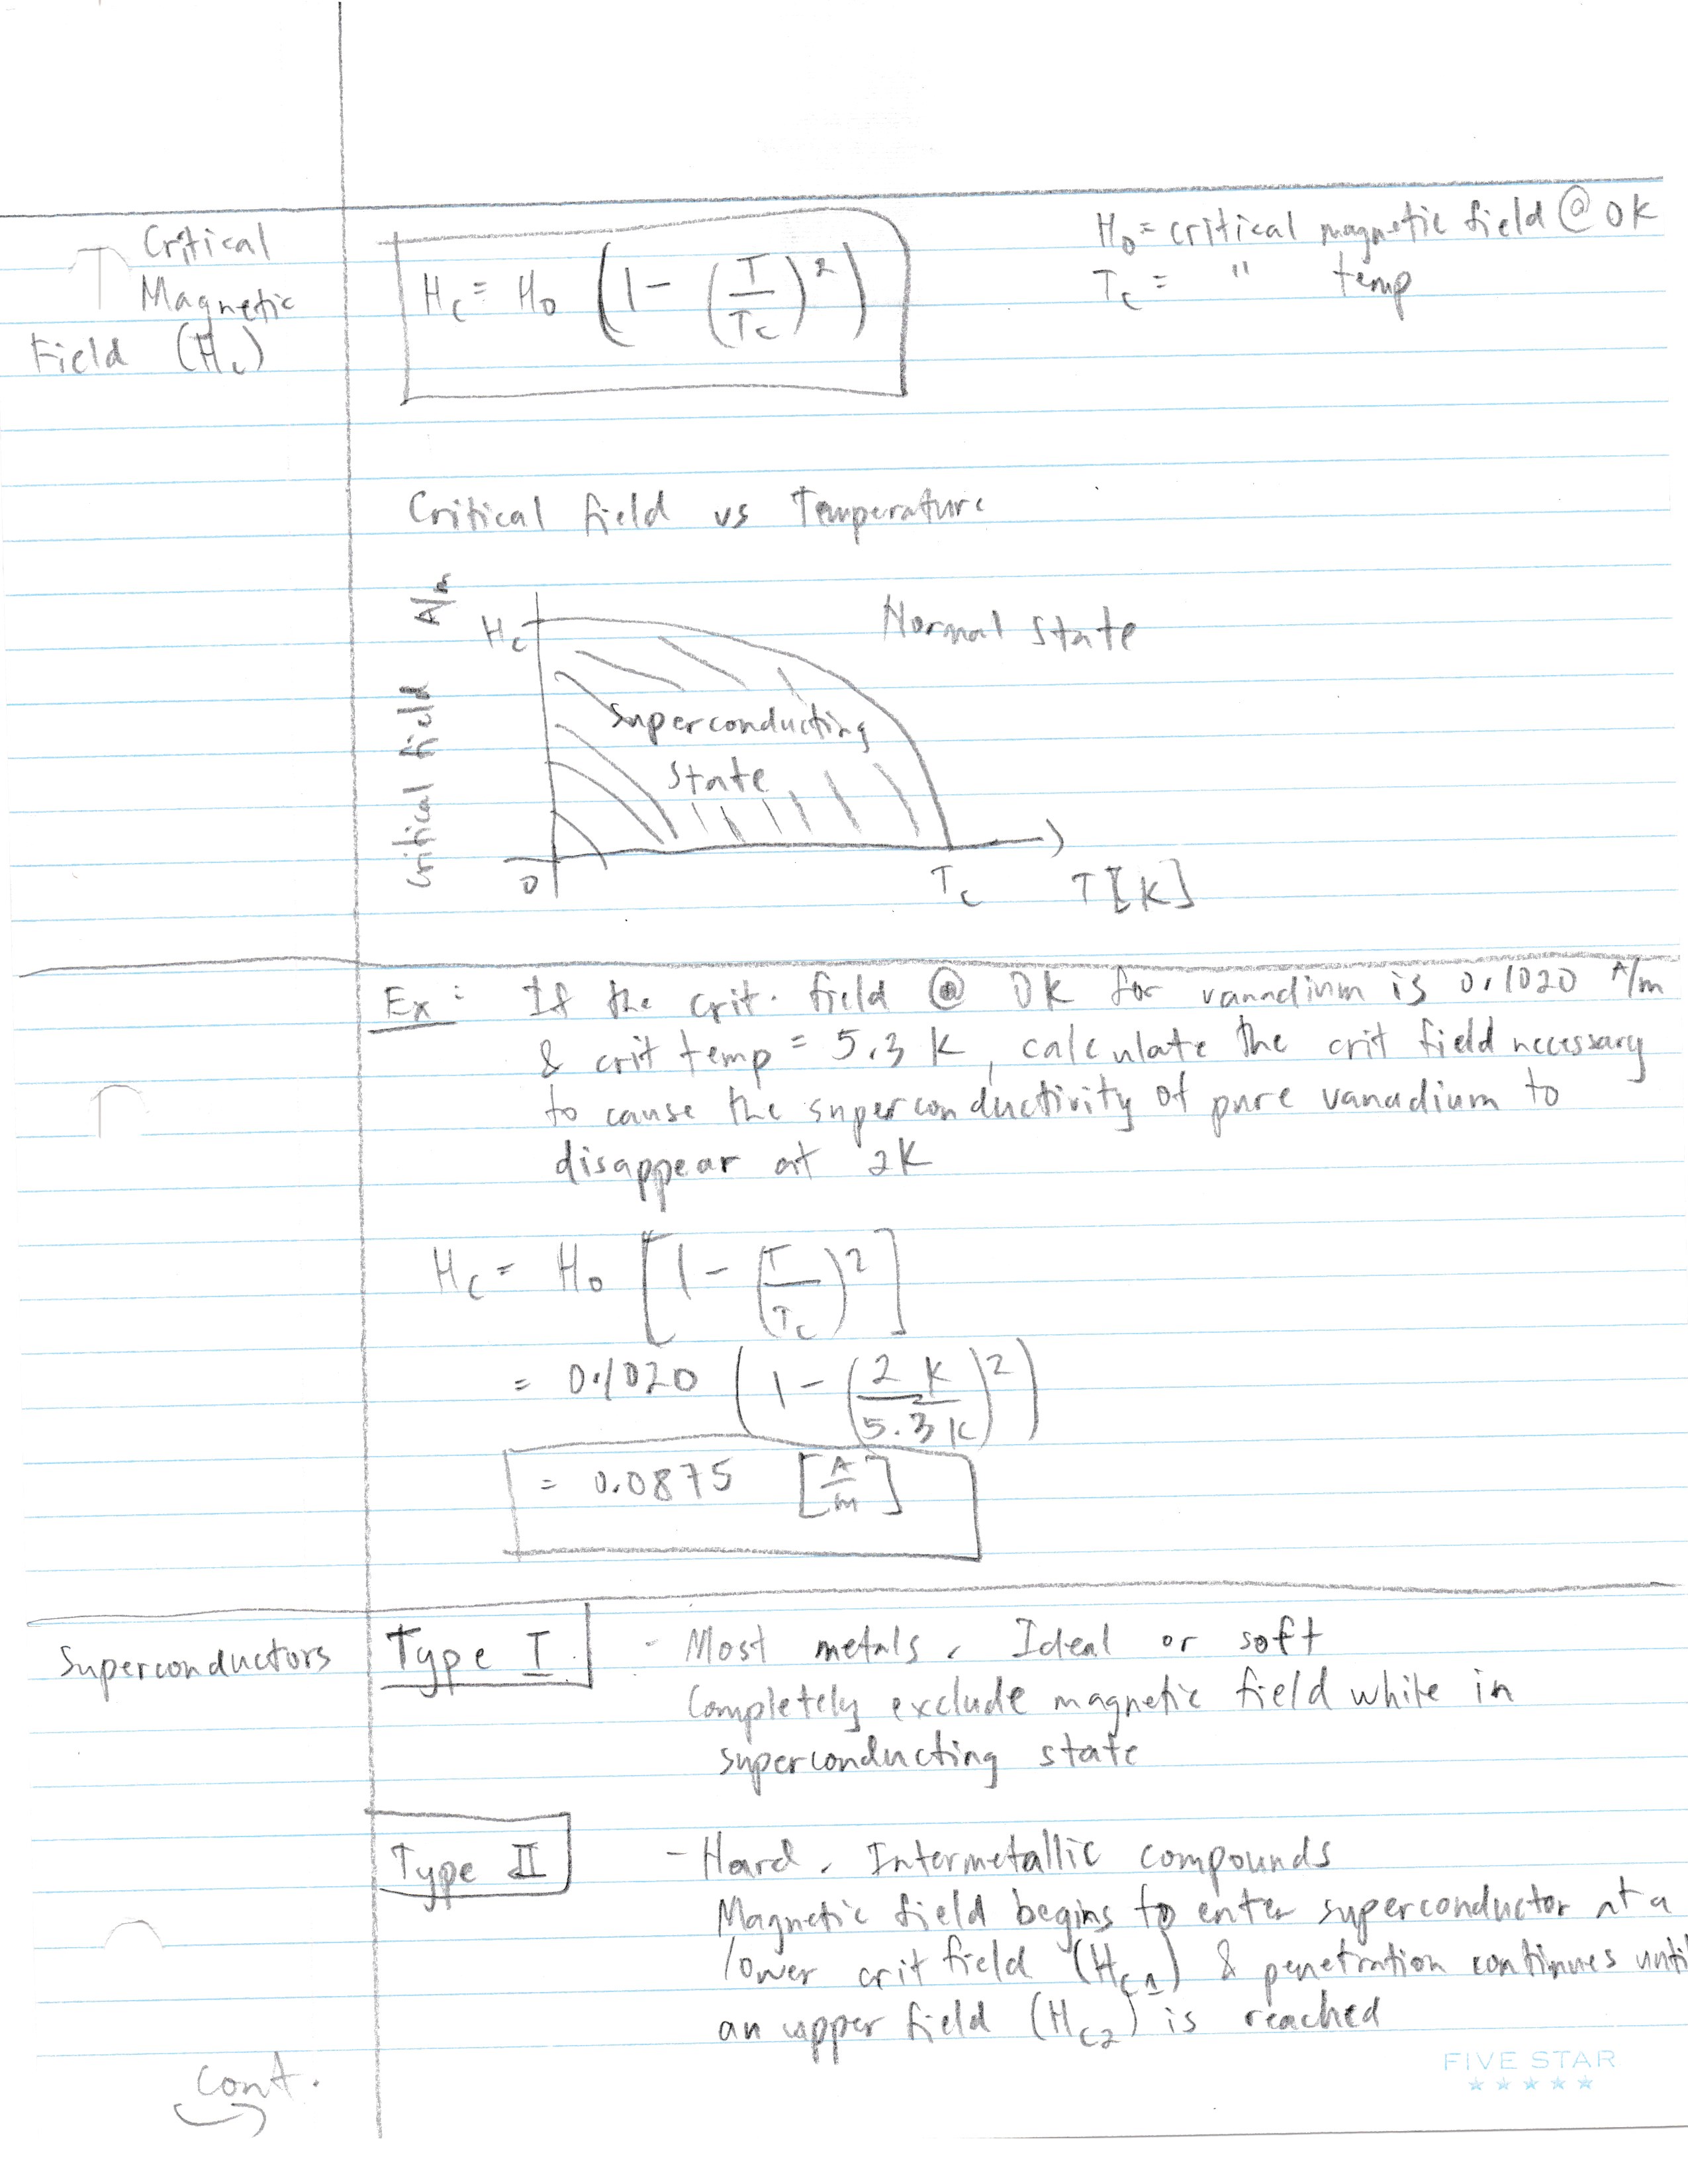 Critical
Magnetic
Field (Hc)
Hc = H0 (1 - (T/Tc)²)
H0 = critical magnetic field @ 0K
Tc = " temp
Critical field vs Temperature
Critical field A/m
Hc
Normal state
Superconducting
State
0
Tc
T [K]
Ex: If the crit. field @ 0K for vanadium is 0.1020 A/m
& crit temp = 5.3 K, calculate the crit field necessary
to cause the superconductivity of pure vanadium to
disappear at 2K
Hc = H0 [1 - (T/Tc)²]
= 0.1020 (1 - (2 K/5.3 K)²)
= 0.0875 [A/m]
Superconductors
Type I
- Most metals. Ideal or soft
Completely exclude magnetic field while in
superconducting state
Type II
- Hard. Intermetallic compounds
Magnetic field begins to enter superconductor at a
lower crit field (Hc1) & penetration continues until
an upper field (Hc2) is reached
cont.
FIVE STAR